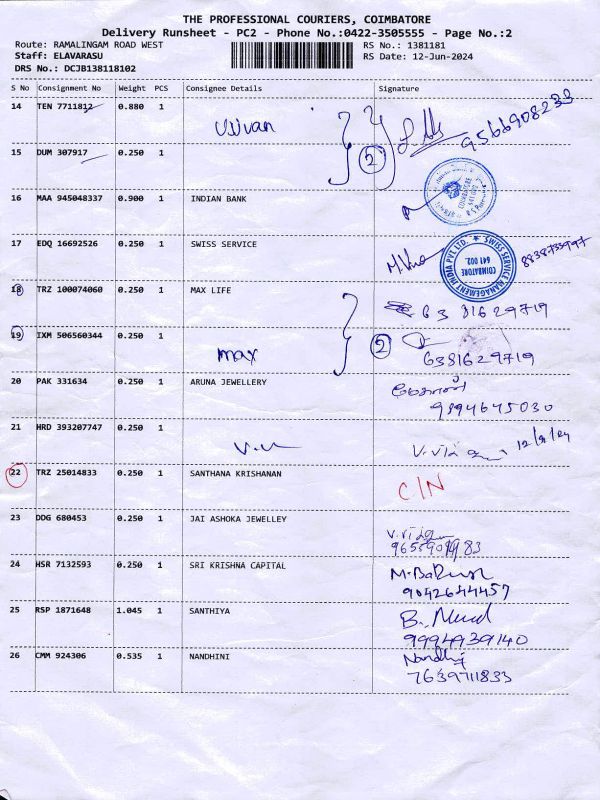 THE PROFESSIONAL COURIERS, COIMBATORE
Delivery Runsheet - PC2 - Phone No.:0422-3505555 - Page No.:2
Route: RAMALINGAM ROAD WEST RS No.: 1381181
Staff: ELAVARASU RS Date: 12-Jun-2024
DRS No.: DCJB138118102
S No Consignment No Weight PCS Consignee Details Signature
14 TEN 7711812 0.880 1 Vivan 9566908233
15 DUM 307917 0.250 1 2
16 MAA 945048337 0.900 1 INDIAN BANK
17 EDQ 16692526 0.250 1 SWISS SERVICE 8838733997
SWISS SERVICE MANAGEMENT INDIA PVT LTD. COIMBATORE 641 002.
18 TRZ 100074060 0.250 1 MAX LIFE 6381629719
19 IXM 506560344 0.250 1 max 2 6381629719
20 PAK 331634 0.250 1 ARUNA JEWELLERY 9894645030
21 HRD 393207747 0.250 1
22 TRZ 25014833 0.250 1 SANTHANA KRISHANAN C/N
23 DDG 680453 0.250 1 JAI ASHOKA JEWELLEY
24 HSR 7132593 0.250 1 SRI KRISHNA CAPITAL 9042644457
25 RSP 1871648 1.045 1 SANTHIYA 9994939140
26 CMM 924306 0.535 1 NANDHINI Nandhi
7639711833